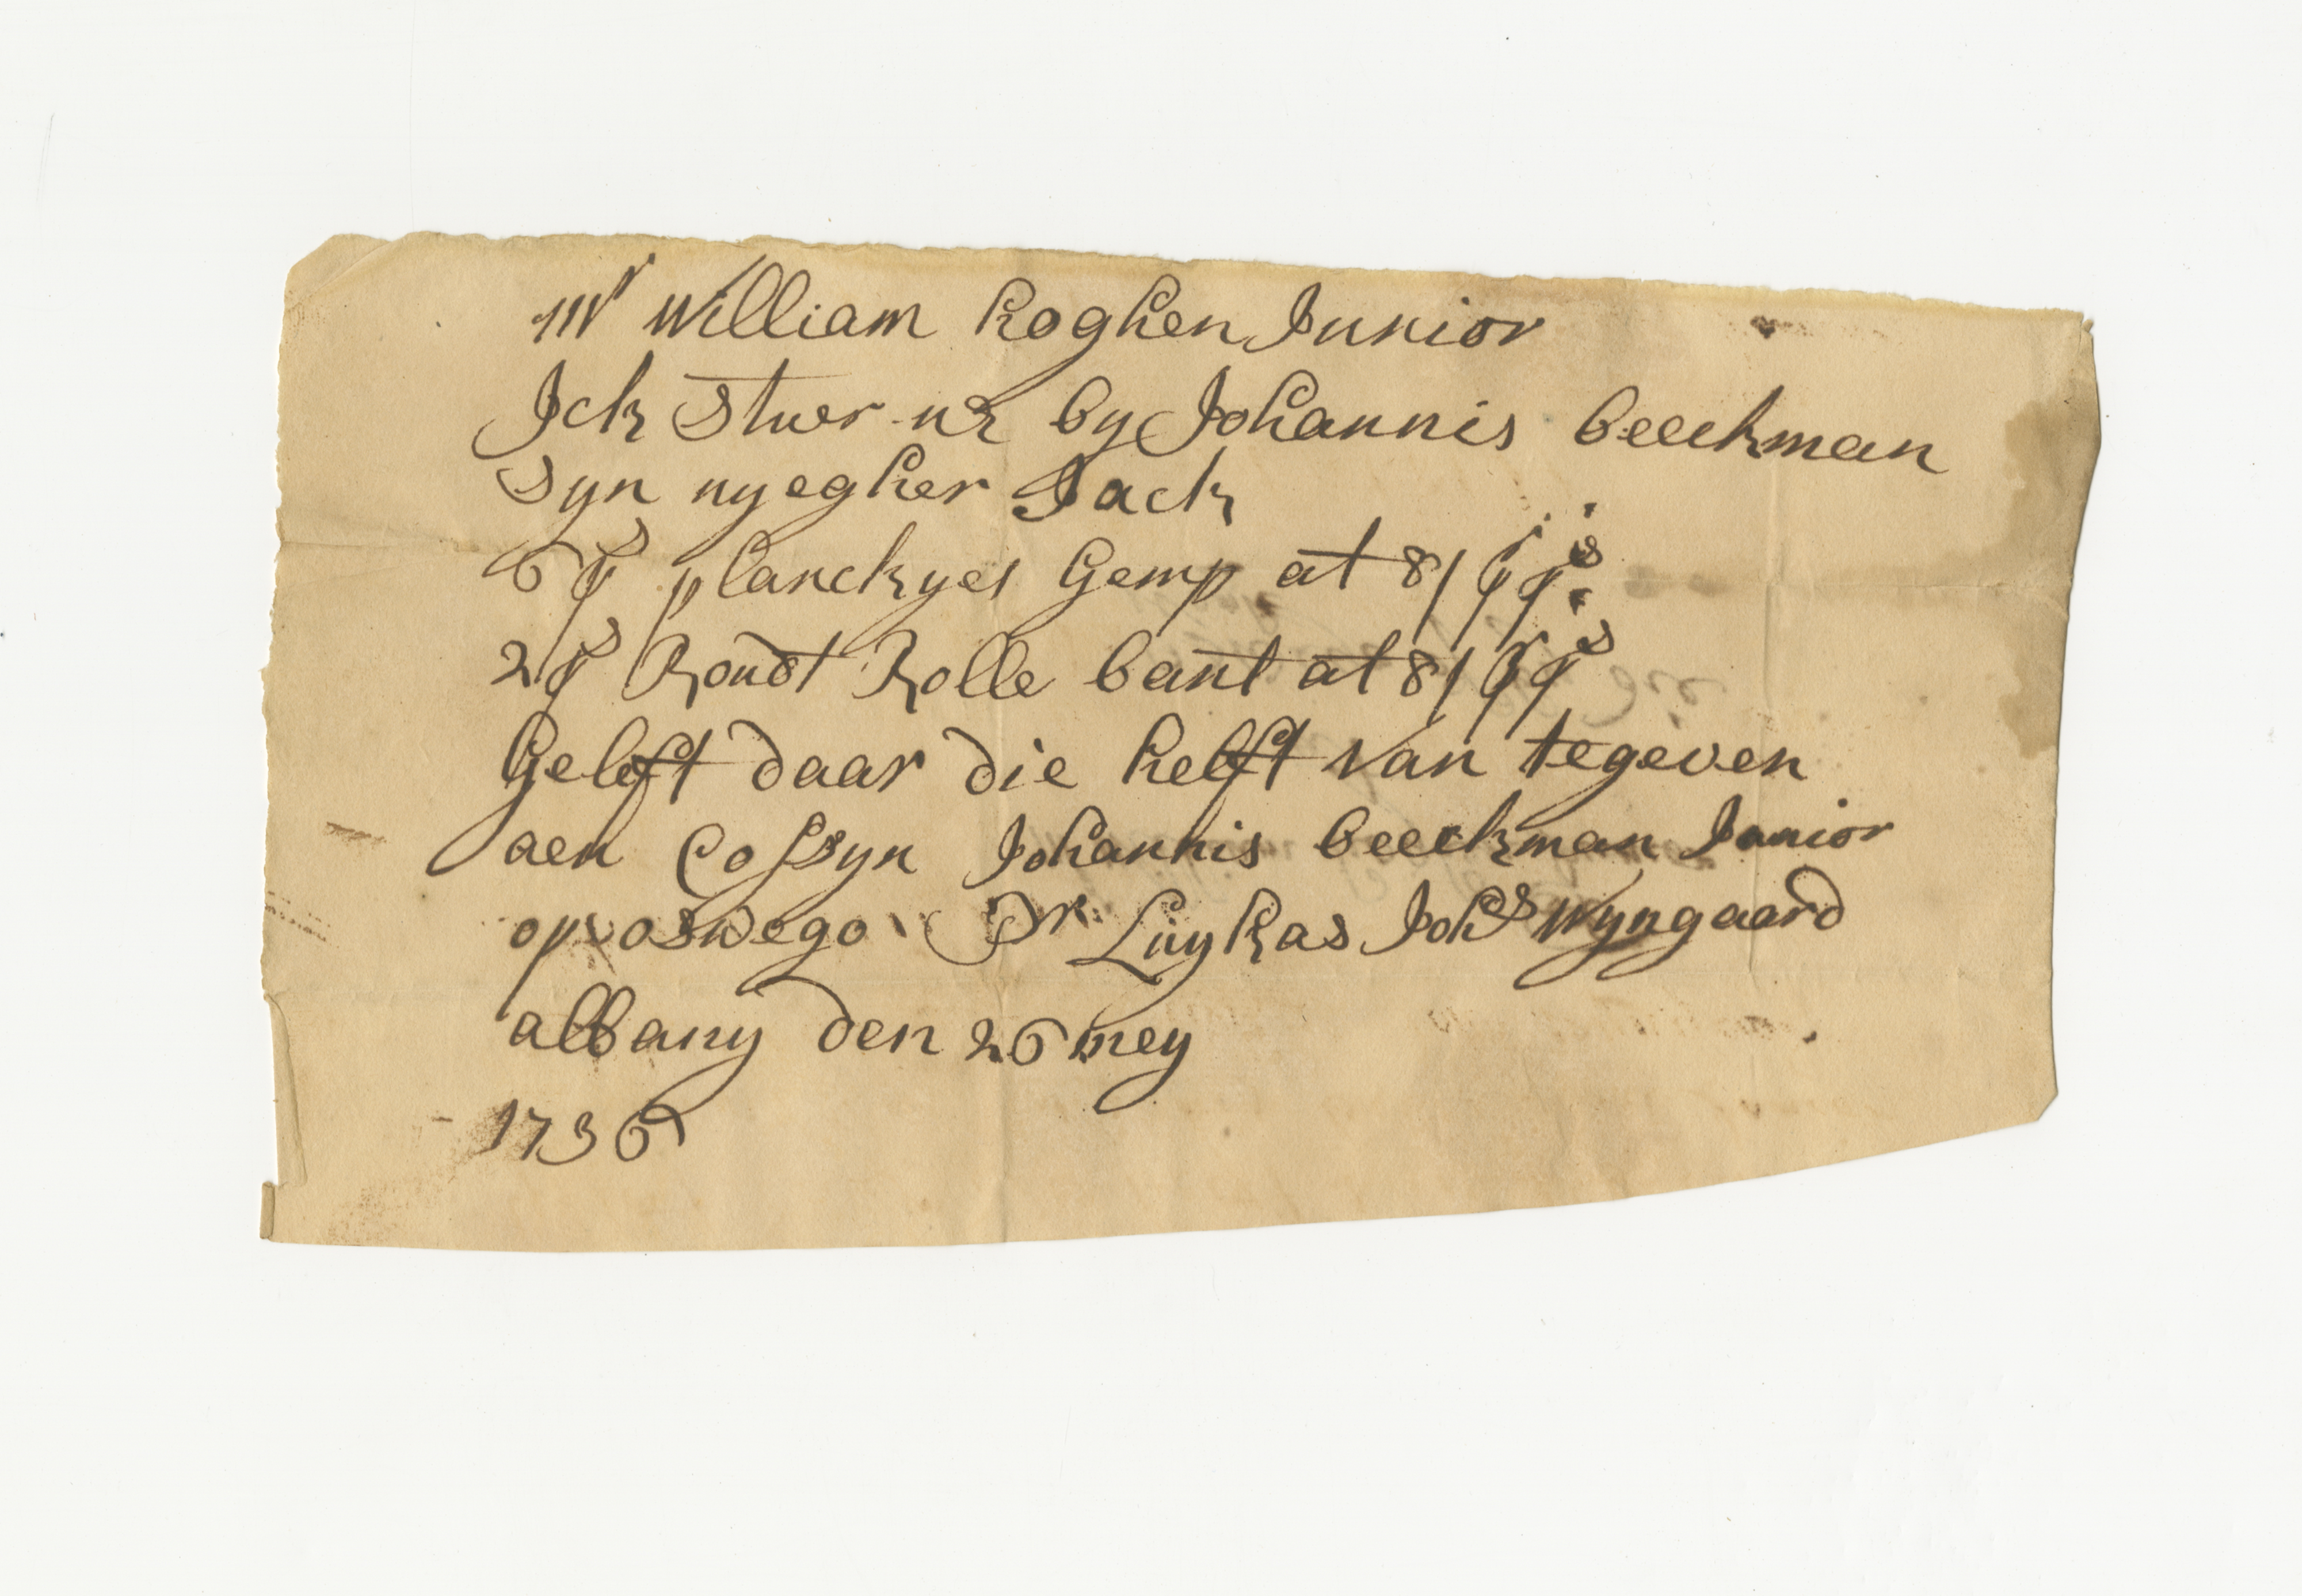 Mr William hoghen Junior
Ick stuer u by Johannis beeckman
syn nyegher Jack
6 ps planckyes Gemp at 8/ ps
2 ps Rondt Rolle bant at 8/ ps
Geleft daar die helft van tegeven
aen Cossyn Johannis beeckman Junior
op oswego Pr Luykas Johs Wyngaard
albany den 26 mey
1736